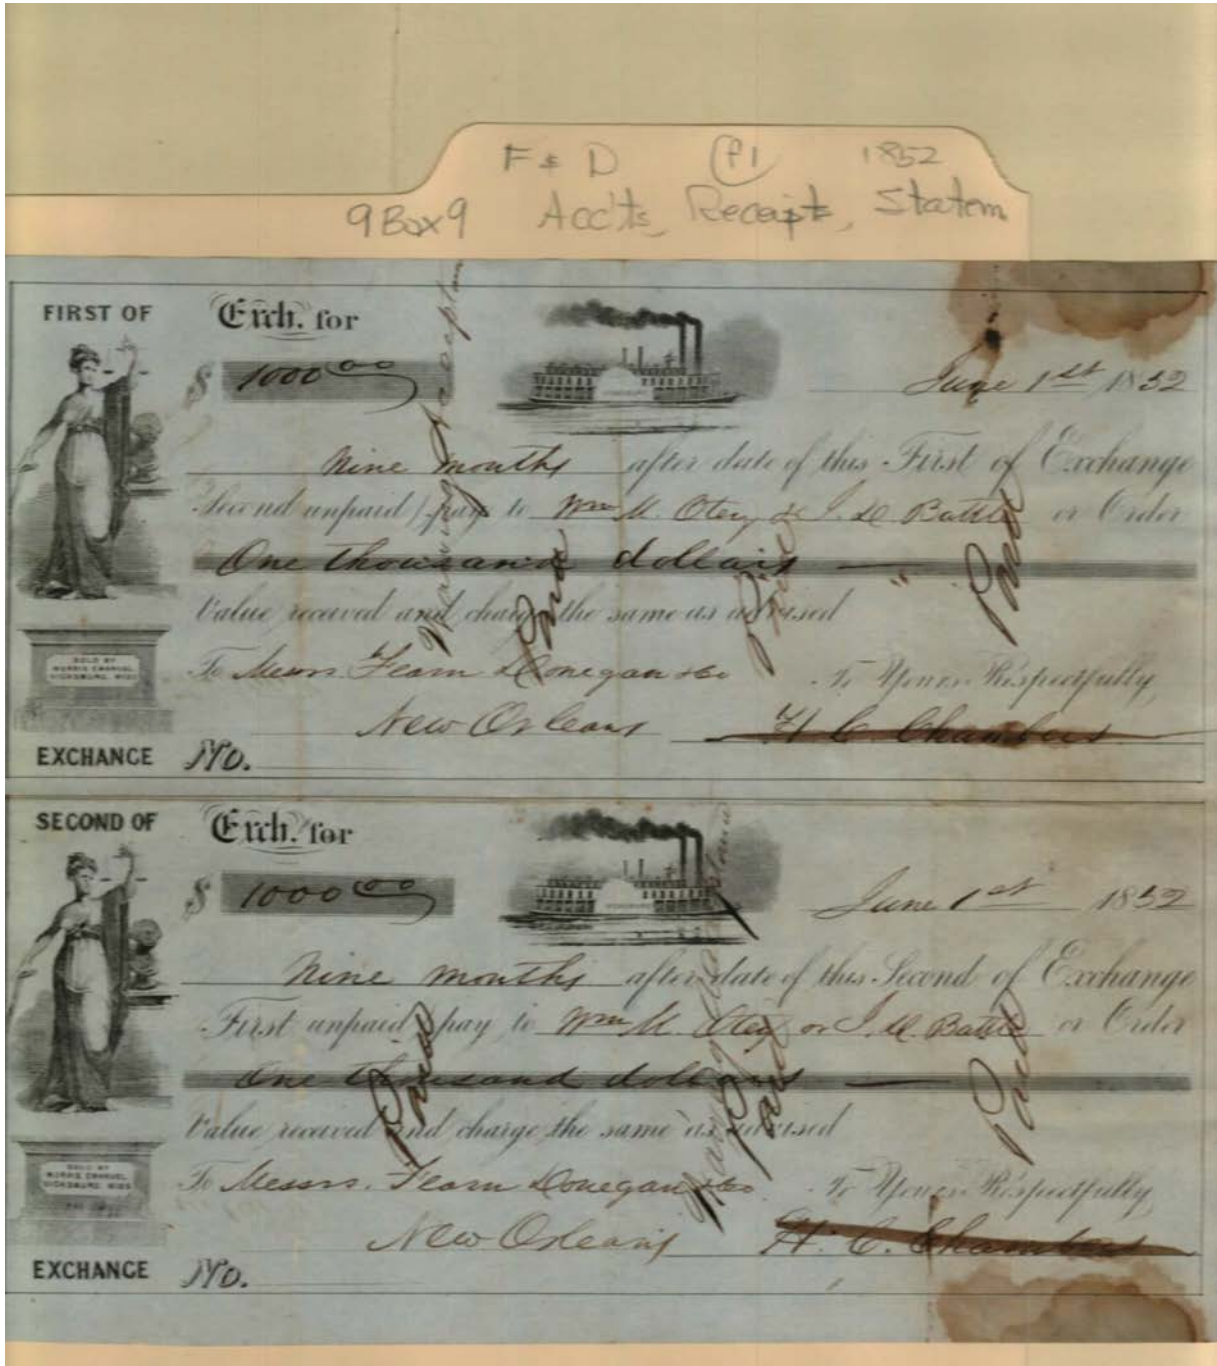 F & D P1 1852
9 Box 9 Acc'ts, Receipts, Statem
FIRST OF
Exch. for
$ 1000 00
June 1st 1852
Nine months after date of this First of Exchange
Second unpaid) pay to Wm M. Otey or J. D. Battle or Order
One thousand dollars
Value received and charge the same as advised
To Messrs. Fearn Donegan & Co
To Yours Respectfully
New Orleans
H C Chambers
SOLD BY
MORRIS EMANUEL
VICKSBURG MISS
EXCHANGE No.
Paid
Paid
Paid
SECOND OF
Exch. for
$ 1000 00
June 1st 1852
Nine months after date of this Second of Exchange
First unpaid) pay to Wm M. Otey or J. D. Battle or Order
One thousand dollars
Value received and charge the same as advised
To Messrs. Fearn Donegan & Co
To Yours Respectfully
New Orleans
H. C. Chambers
SOLD BY
MORRIS EMANUEL
VICKSBURG MISS
EXCHANGE No.
Paid
Paid
Paid